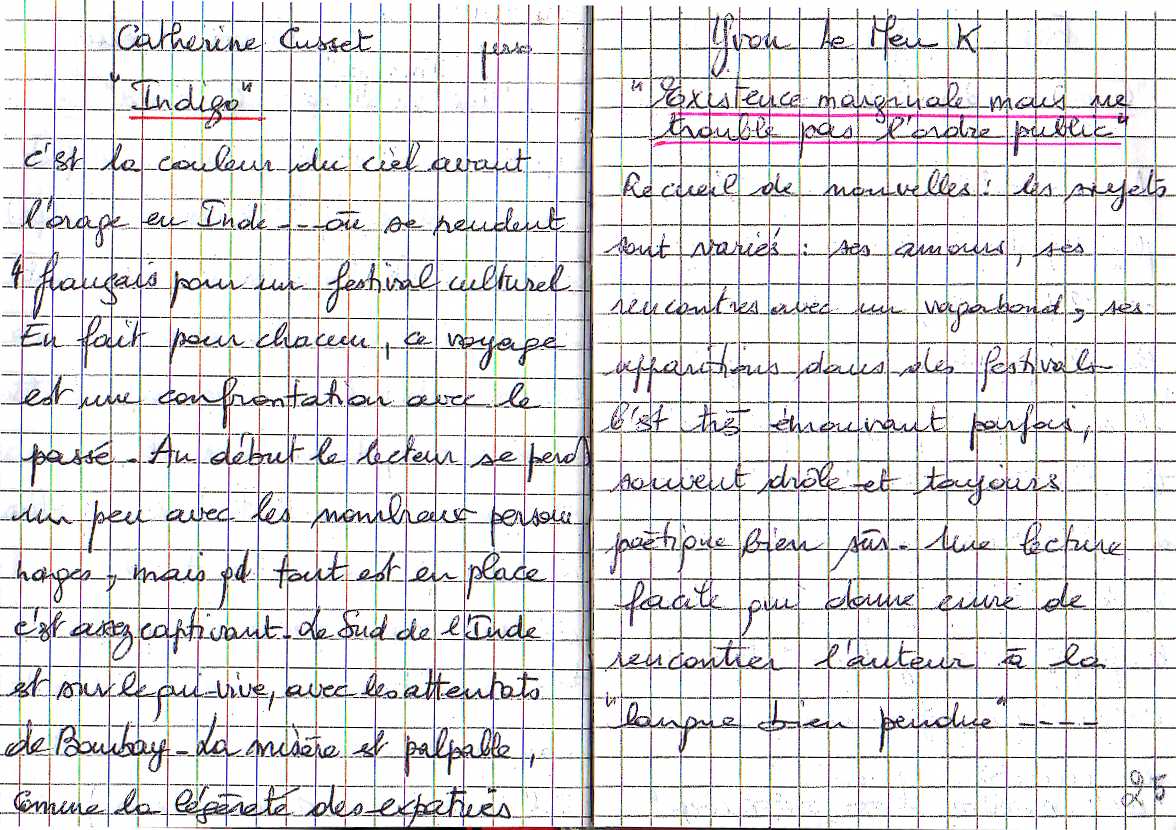 Catherine Cusset perso
"Indigo"
c'est la couleur du ciel avant
l'orage en Inde --- où se rendent
4 français pour un festival culturel
En fait pour chacun, ce voyage
est une confrontation avec le
passé - Au début le lecteur se perd
un peu avec les nombreux person
nages, mais qd tout est en place
c'est assez captivant - Le Sud de l'Inde
est sur le qui-vive, avec les attentats
de Bombay - La misère est palpable,
comme la légèreté des expatriés
Yvon Le Men K
"Existence marginale mais ne
trouble pas l'ordre public"
Recueil de nouvelles : les sujets
sont variés : ses amours, ses
rencontres avec un vagabond, ses
apparitions dans des festivals
C'est très émouvant parfois,
souvent drôle et toujours
poétique bien sûr - Une lecture
facile qui donne envie de
rencontrer l'auteur à la
"langue bien pendue" ----
25